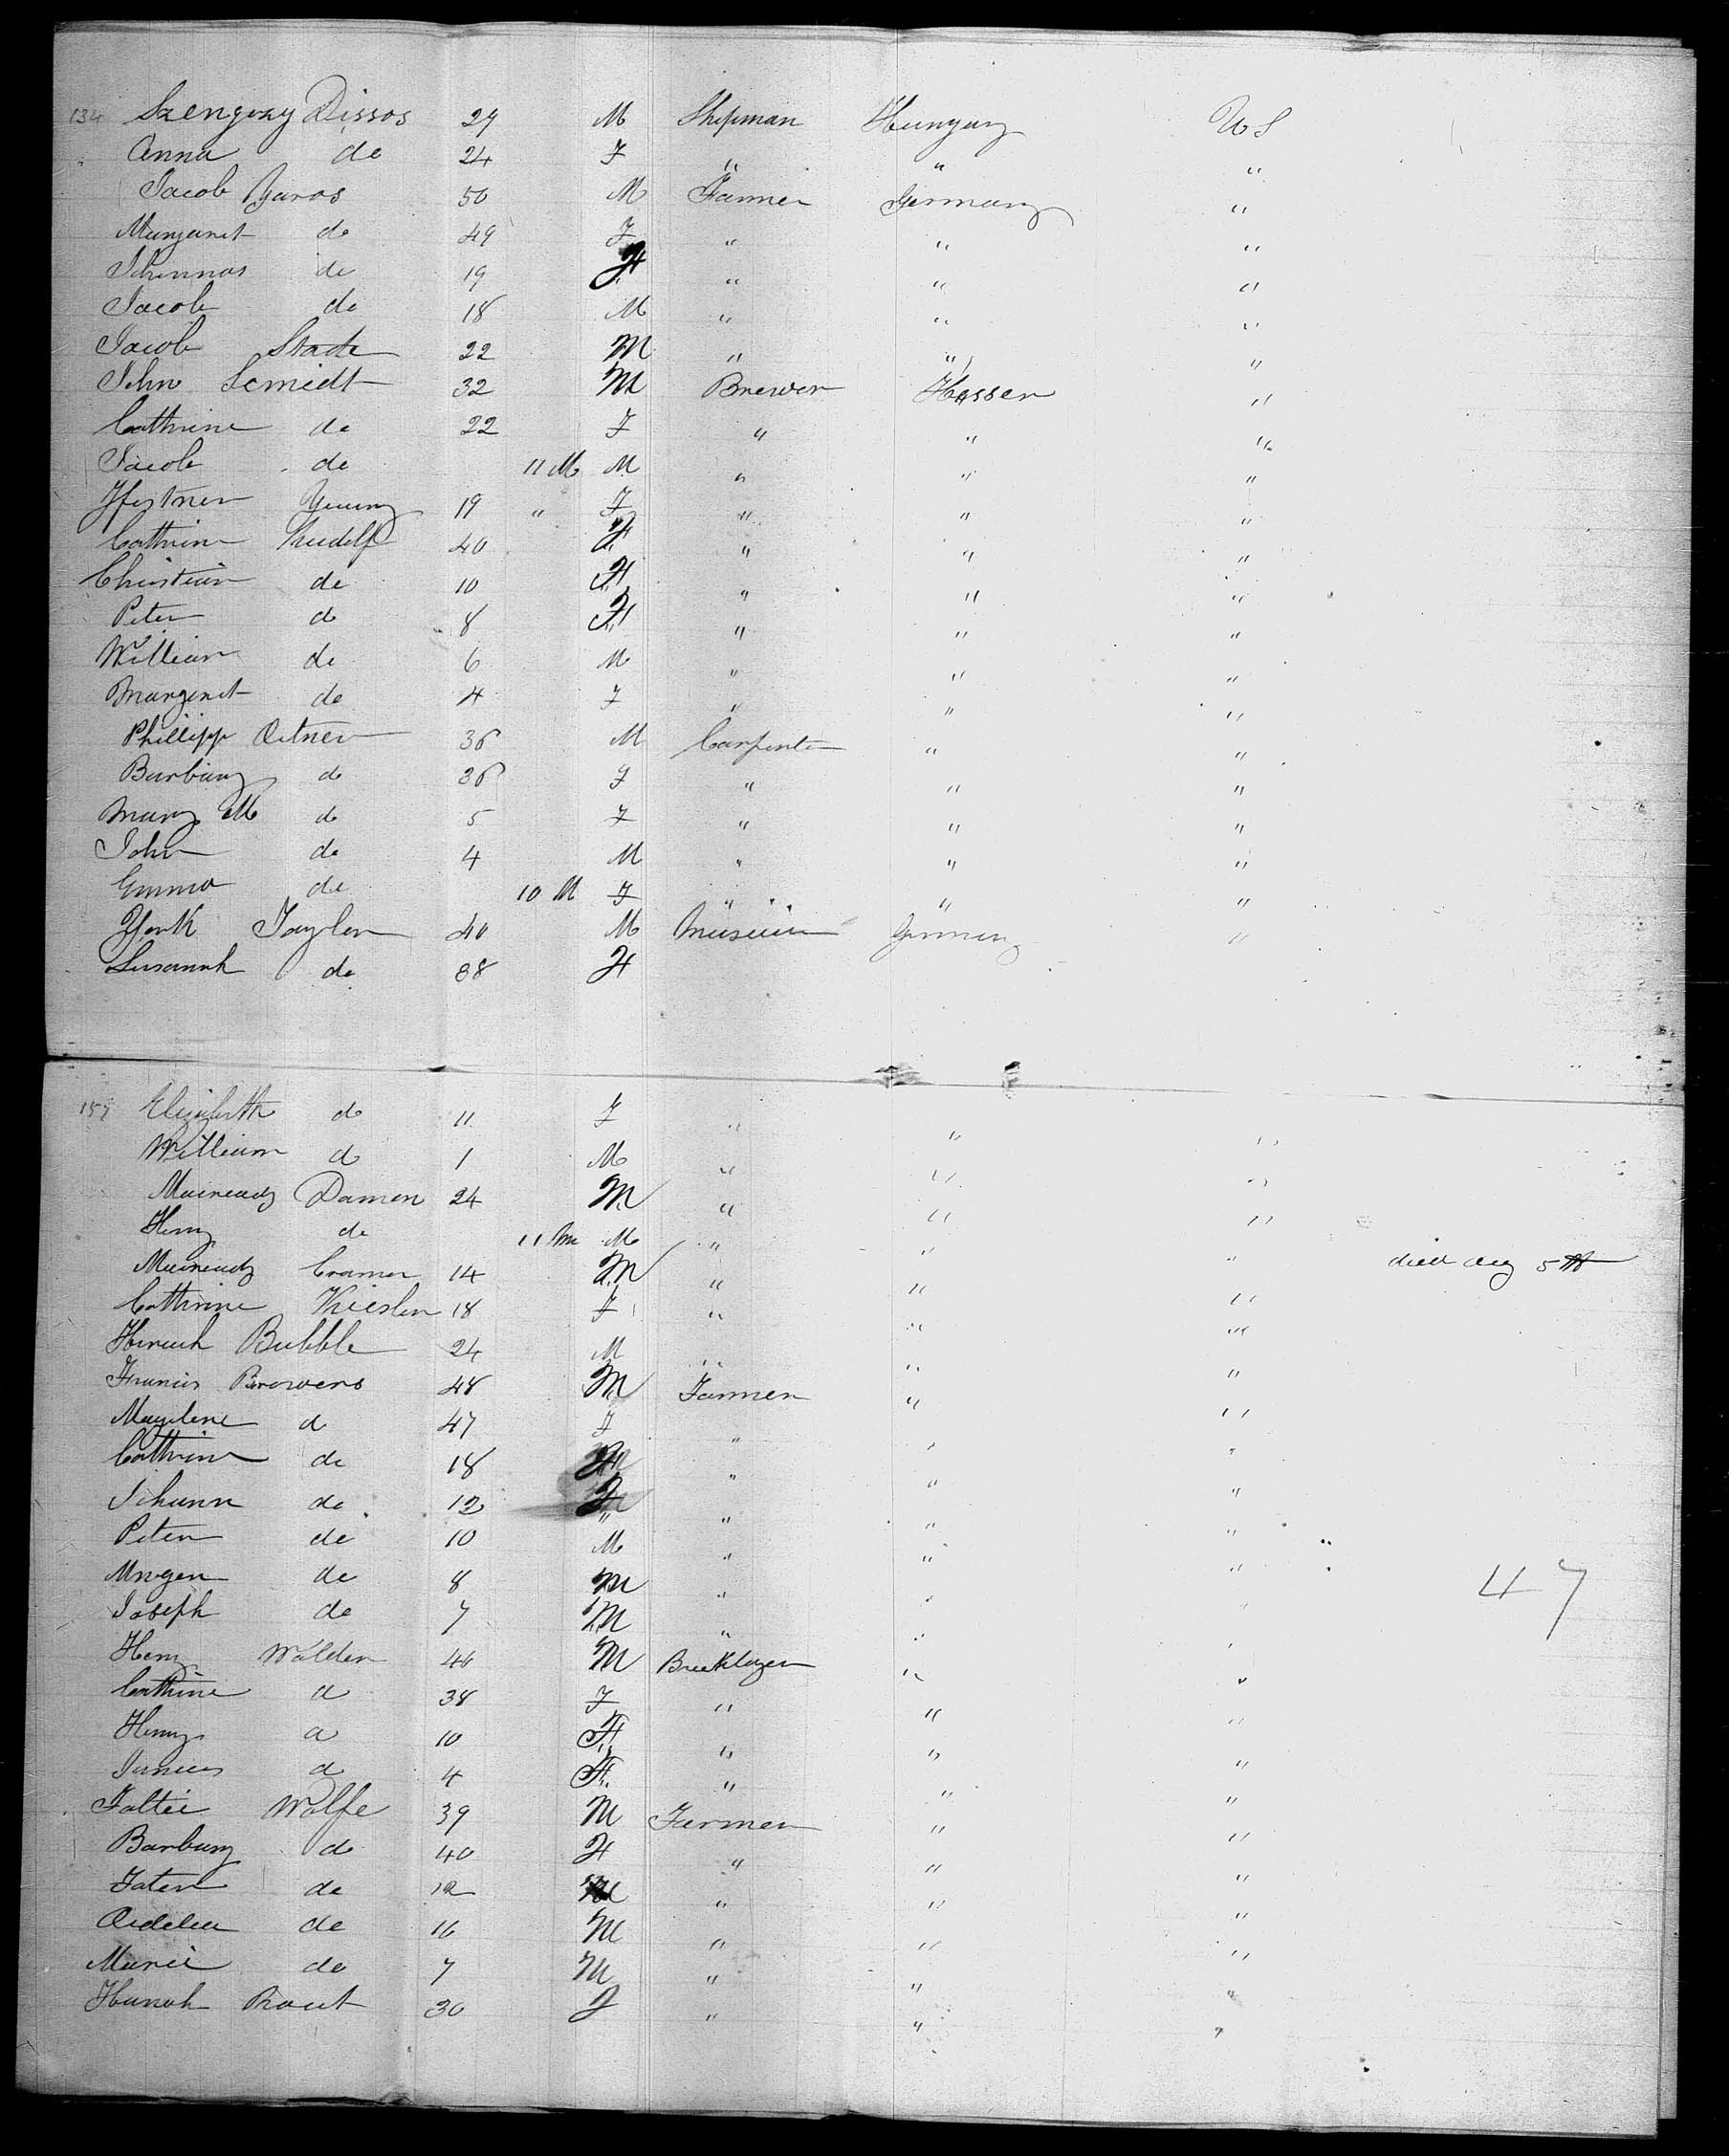 134 Szengozy Dissos 29 M Shipman Hungary US
Anna do 24 F " " "
Jacob Yaros 50 M Farmer Germany "
Margaret do 49 F " " "
Johannas do 19 F " " "
Jacob do 18 M " " "
Jacob Stade 22 M " " "
John Scmidt 32 M Brewer Hessen "
Cathrine do 22 F " " "
Jacob do 11 M M " " "
19 " F " " "
Cathrine Rudolf 40 F " " "
Christian do 10 F " " "
Peter do 8 F " " "
William do 6 M " " "
Margaret do 4 F " " "
Phillipp Oetner 36 M Carpenter " "
Barbary do 36 F " " "
Mary M do 5 F " " "
John do 4 M " " "
Emma do 10 M F " " "
York Taylor 40 M Germany "
Susannah do 38 F
157 Elizabeth do 11 F " " "
William do 1 M " " "
Damen 24 M " " "
Henry do 11 m M " " " died Aug 5th
Cramer 14 M " " "
Cathrine Kiesler 18 F " " "
Bubble 24 M " " "
Francis Browers 48 M Farmer " "
Magdlene do 47 F " " "
Cathrine do 18 " " "
Johann do 12 " " "
Peter do 10 M " " "
do 8 M " " " 47
Joseph do 7 M " " "
Henry Walder 46 M Bricklayer " "
Cathrine do 38 F " " "
Henry do 10 F " " "
do 4 F " " "
Wolfe 39 M Farmer " "
Barbary do 40 F " " "
do 12 M " " "
do 16 M " " "
Marie do 7 M " " "
Hanah Braut 30 F " " "